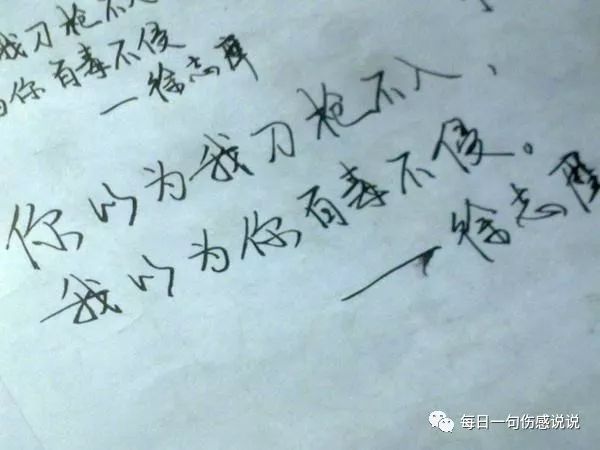 我刀枪不入
为你百毒不侵
一徐志摩
你以为我刀枪不入、
我以为你百毒不侵。
一徐志摩
每日一句伤感说说